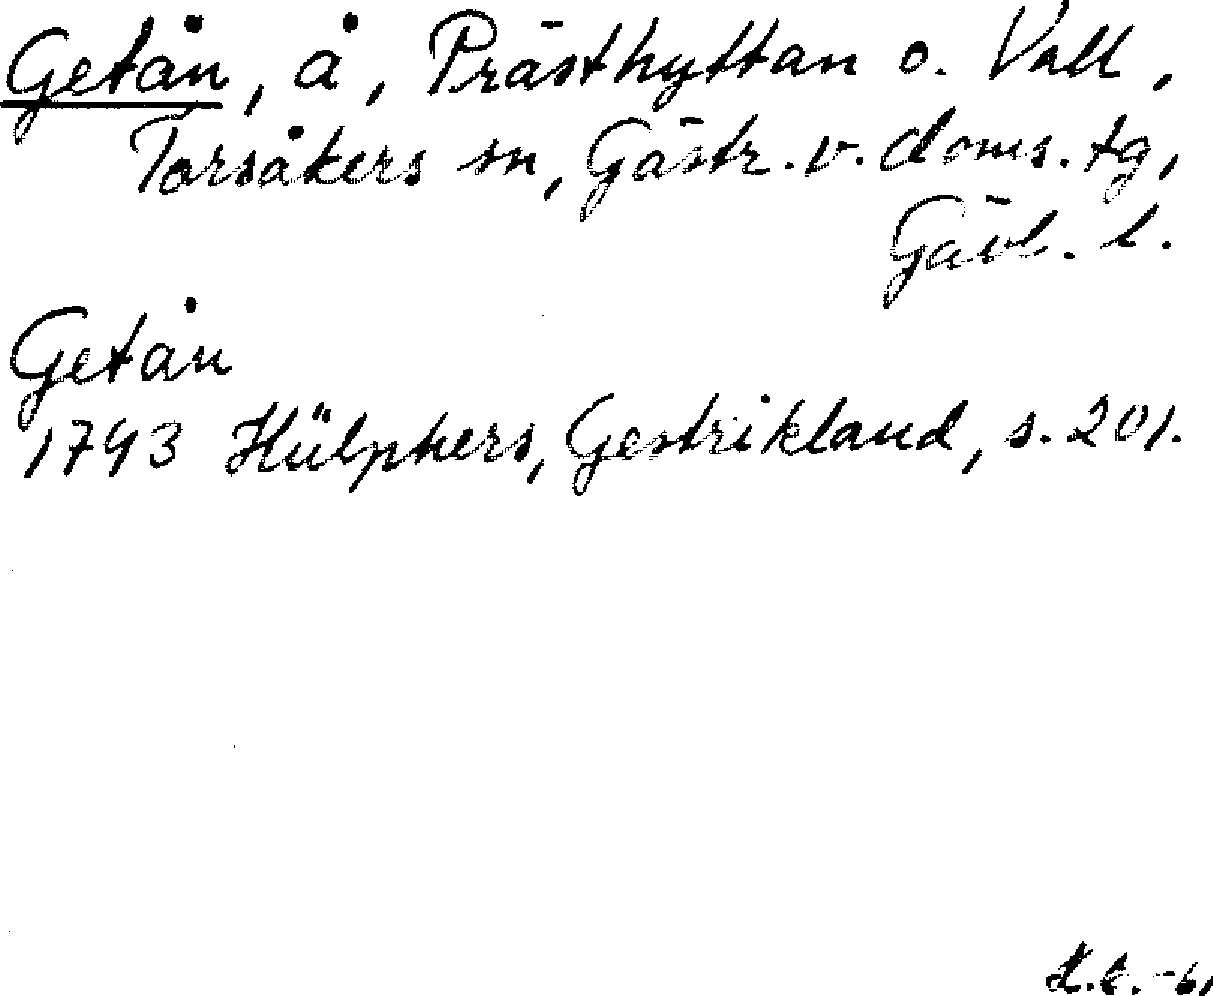 Getån, å, Prästhyttan o. Vall,
Torsåkers sn, Gästr. v. doms. tg,
Gävl. l.
Getån
1793 Hülphers, Gestrikland, s. 201.